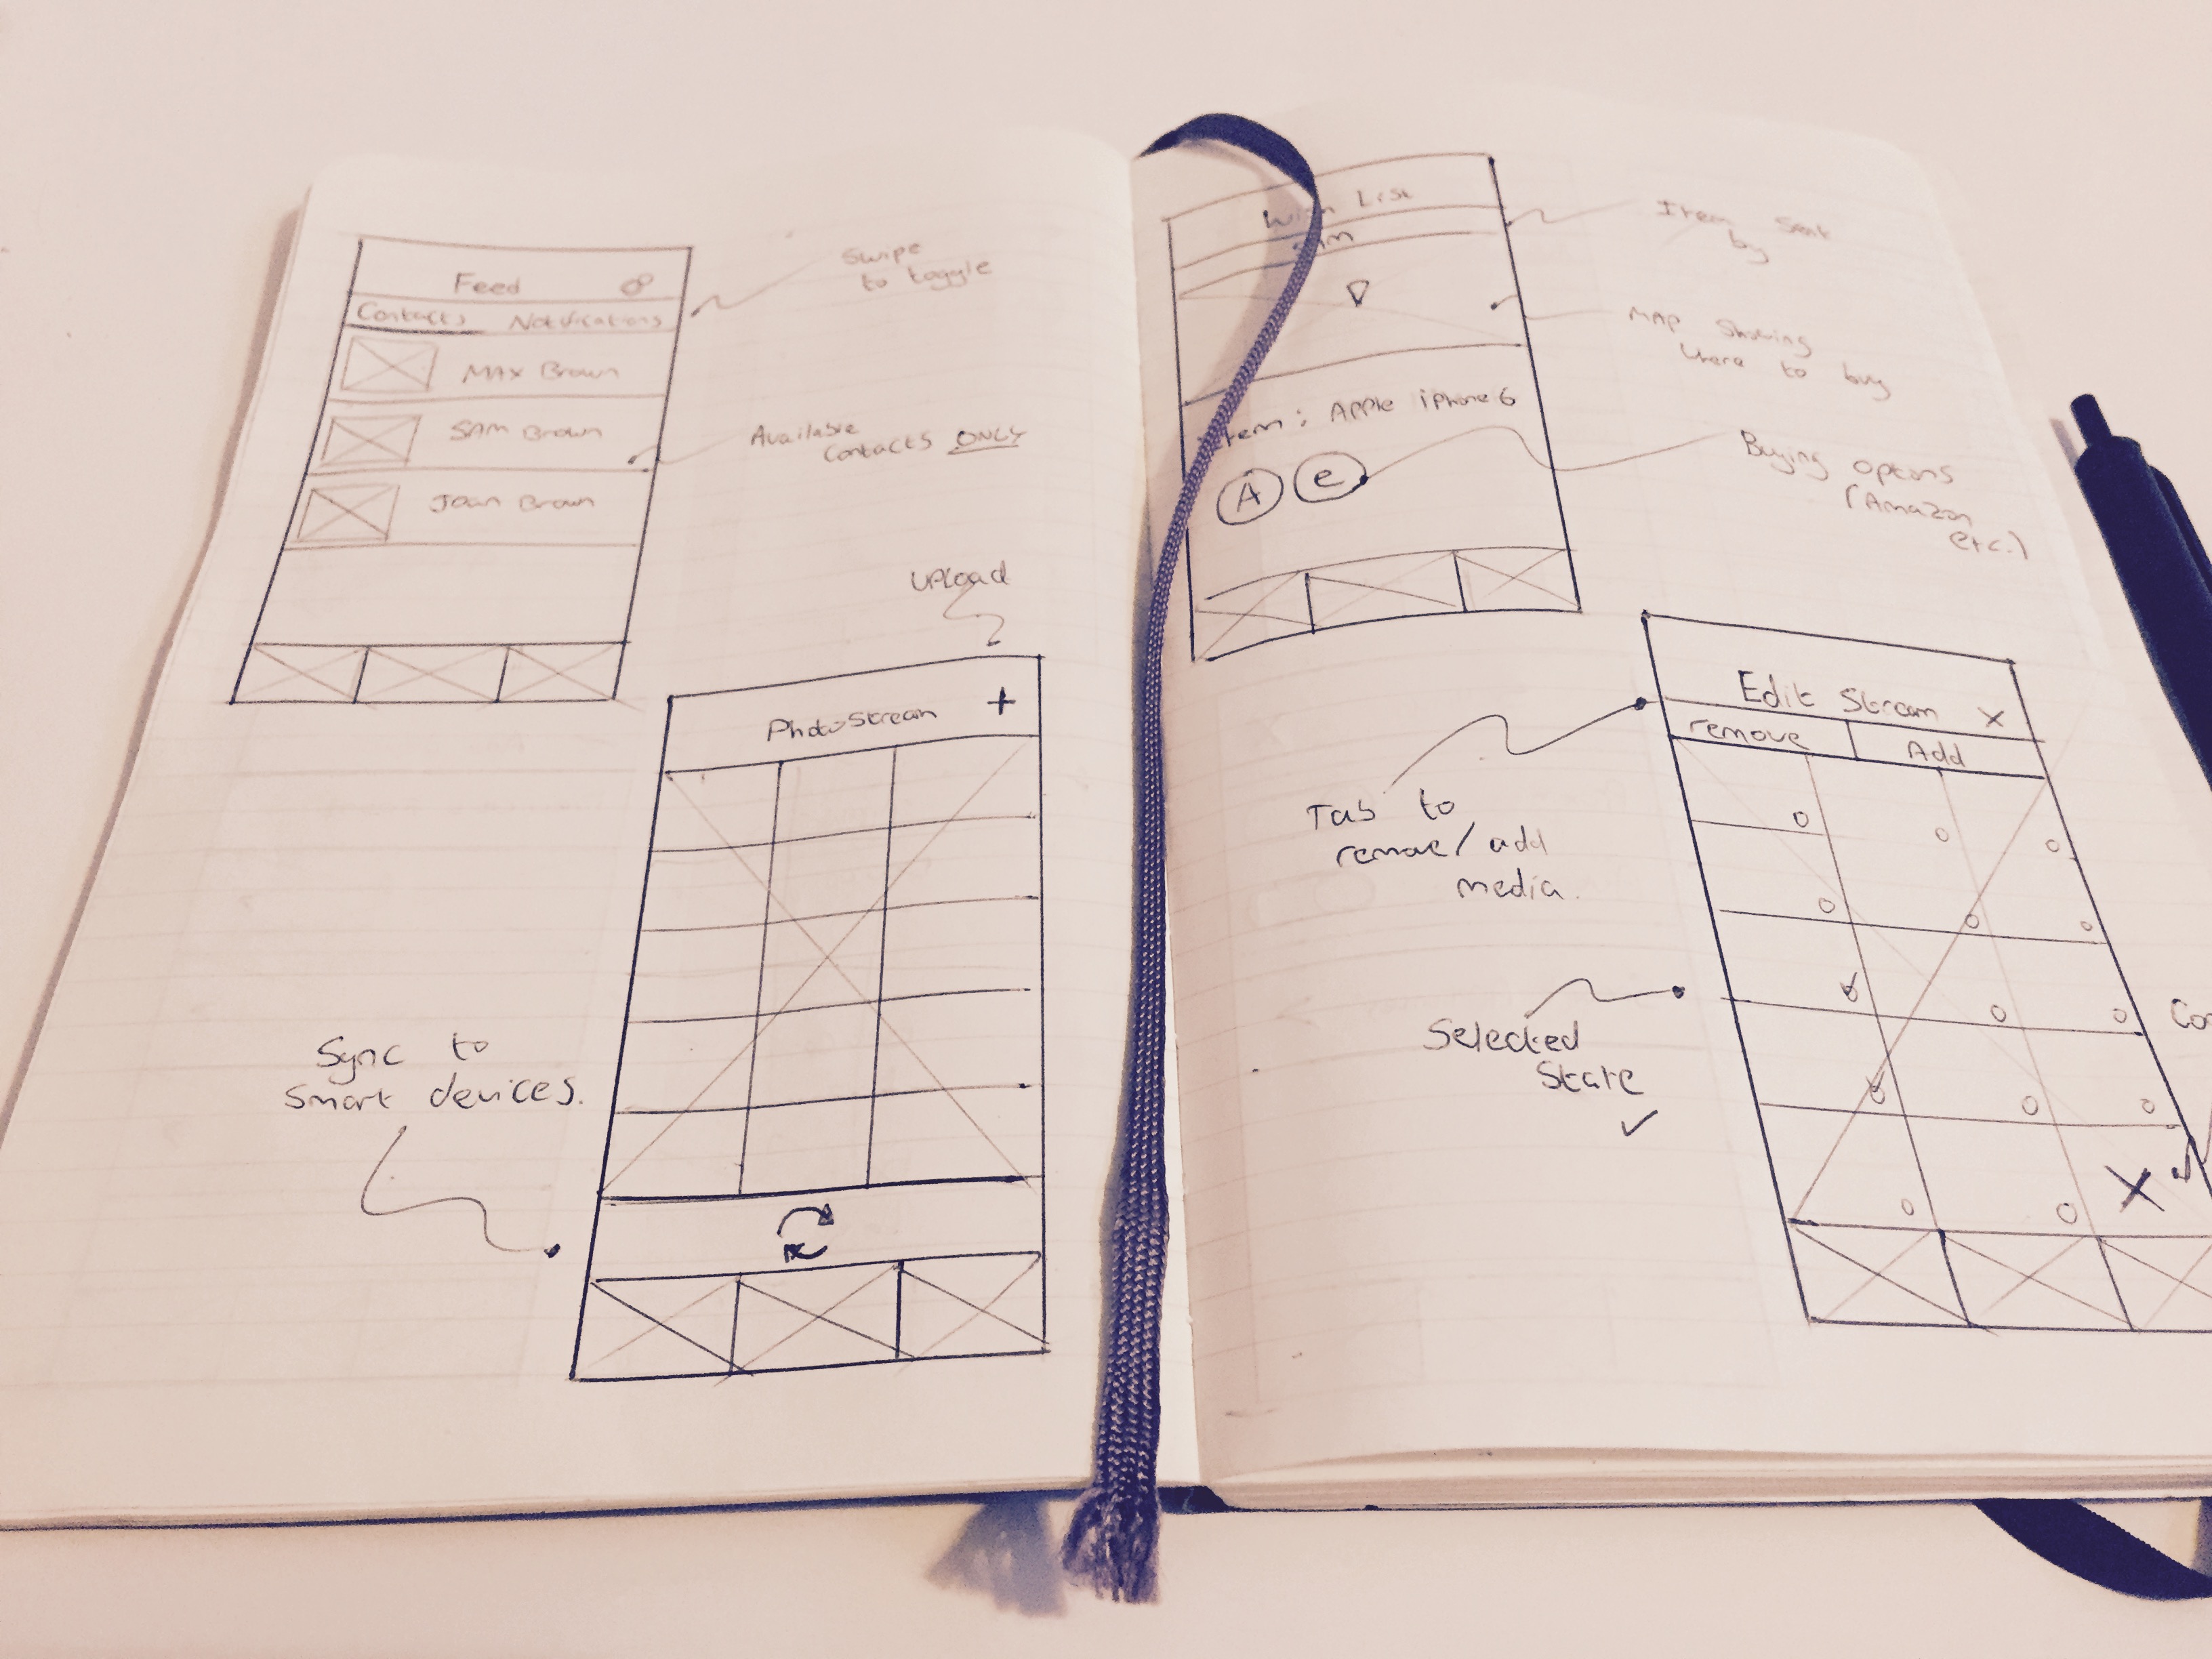 Feed
Contacts Notifications
MAX Brown
SAM Brown
Joan Brown
Swipe
to toggle
Available
Contacts ONLY
Upload
PhotoStream +
Sync to
Smart devices.
Wish List
Item : Apple iPhone 6
A e
Item Sent
by
MAP Showing
where to buy
Buying options
(Amazon
etc.)
Edit Stream X
remove Add
Tab to
remove/add
media.
Selected
State
✓
X